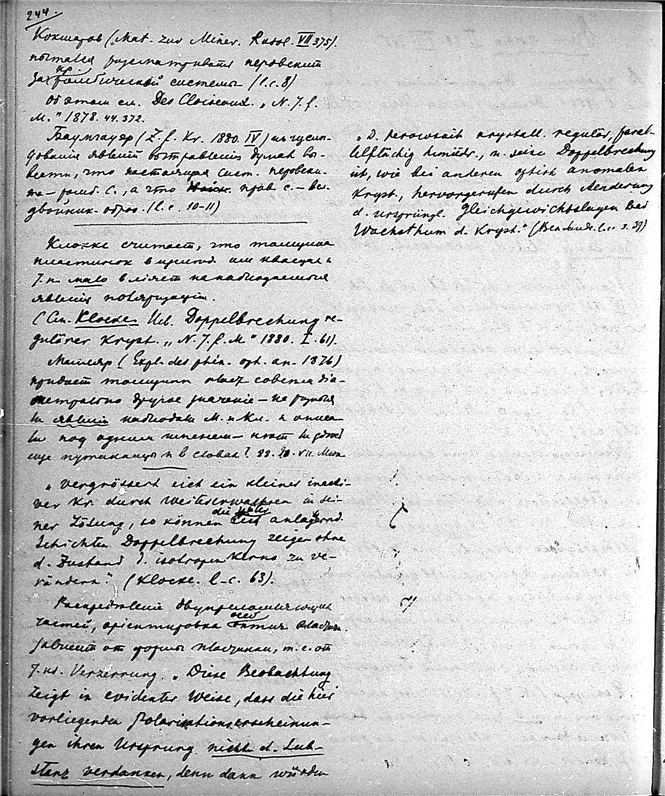 244.
Кокшаров (Mat. zur Miner. Russl. VII 375).
пытался рассматривать перовскит
ромбической системы (l. c. 8)
об этом см. Des Cloiseaux. „N. J. f.
M." 1878. 44. 372.
Баумгауер (Z. f. Kr. 1880. IV) из иссле-
дования явлений вытравления думал вы-
вести, что настоящая сист. перовски-
та – ромб. с., а что прав. с. –
двойник. образ. (l. c. 10–11)
Клокке считает, что толщина
пластинок в
мало влияет на наблюдаемые
явления поляризации.
(См. Klocke. Ueb. Doppelbrechung re-
gulärer Kryst. „N. J. f. M." 1880. I. 61).
Малляр (Expl. des phén. opt. an. 1876)
придает толщине совсем диа-
метрально другое значение – не разныя
ли явления наблюдали М. и Кл. и описа-
ли под одним именем – нет ли здесь
еще путаницы и в словах?
„Vergrössert sich ein kleiner inacti-
ver Kr. durch Weiterwachsen in sei-
ner Lösung, so können die anlagernd.
Schichten Doppelbrechung zeigen ohne
d. Zustand d. isotropen Kerns zu ve-
rändern." (Klocke. l. c. 63).
Распределение двупреломляющих
частей, ориентировка оптич. осей
зависит от формы пластинки, т. е. от
Verzerrung. „Diese Beobachtung
zeigt in evidenter Weise, dass die hier
vorliegenden Polarisationserscheinun-
gen ihren Ursprung nicht d. Sub-
stanz verdanken, denn dann würden
„D. Perowskit krystall. regulär,
hemiëdr., u. seine Doppelbrechung
ist, wie bei anderen optisch anomalen
Kryst., hervorgerufen durch Aenderung
d. ursprüngl. Gleichgewichtslagen bei
Wachsthum d. Kryst." (Ben Saude. l. c. S. 37)